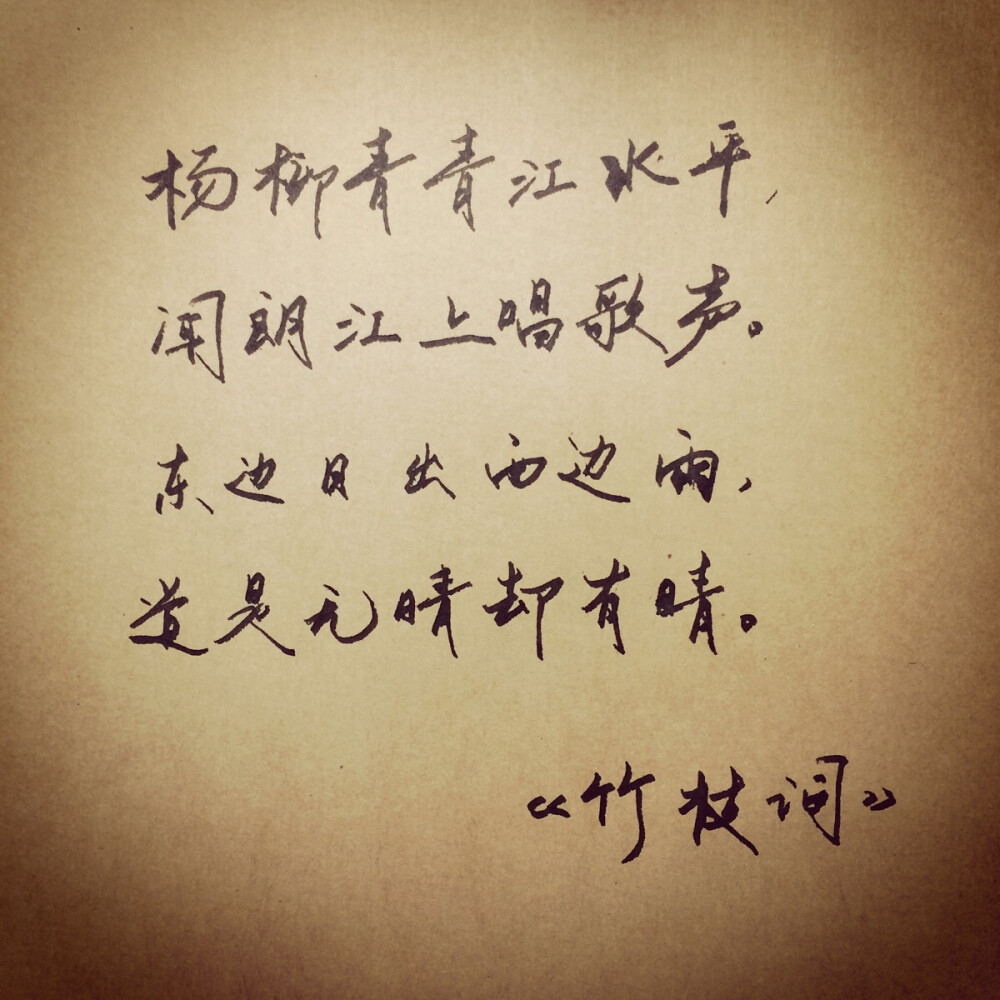 杨柳青青江水平，
闻朗江上唱歌声。
东边日出西边雨，
道是无晴却有晴。
《竹枝词》